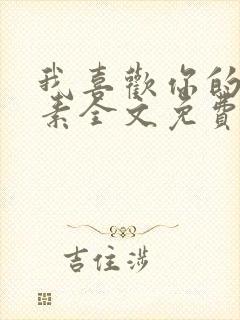 我喜歡你的
素全文免費
吉住涉